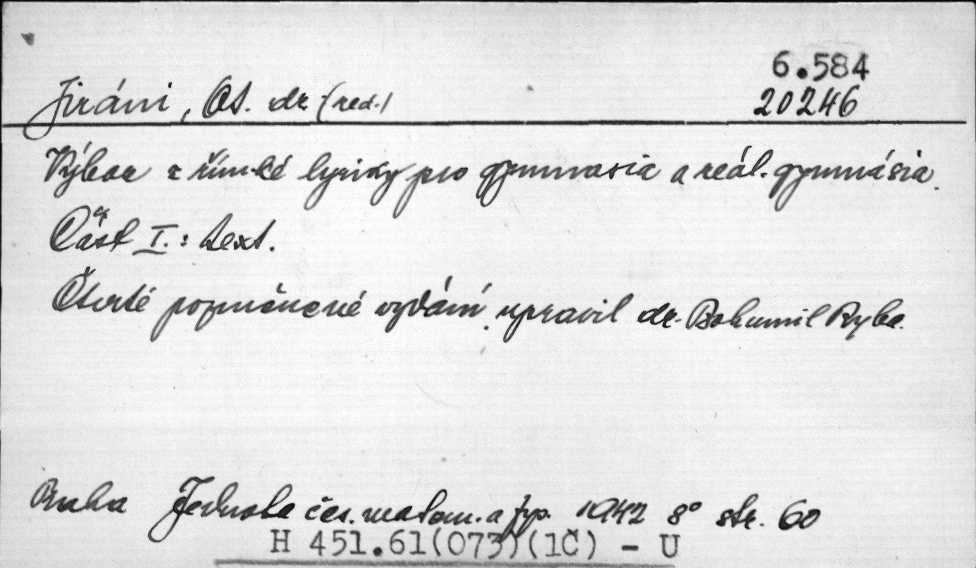 6.584
Jiráni, Ot. dr. (red.)
20246
Výbor z římské lyriky pro gymnasia a reál. gymnásia.
Část I.: text.
Čtvrté pozměněné vydání upravil dr. Bohumil Ryba.
Praha Jednota čes. matem. a fys. 1942 8° str. 60
H 451.61(073)(1Č) - U